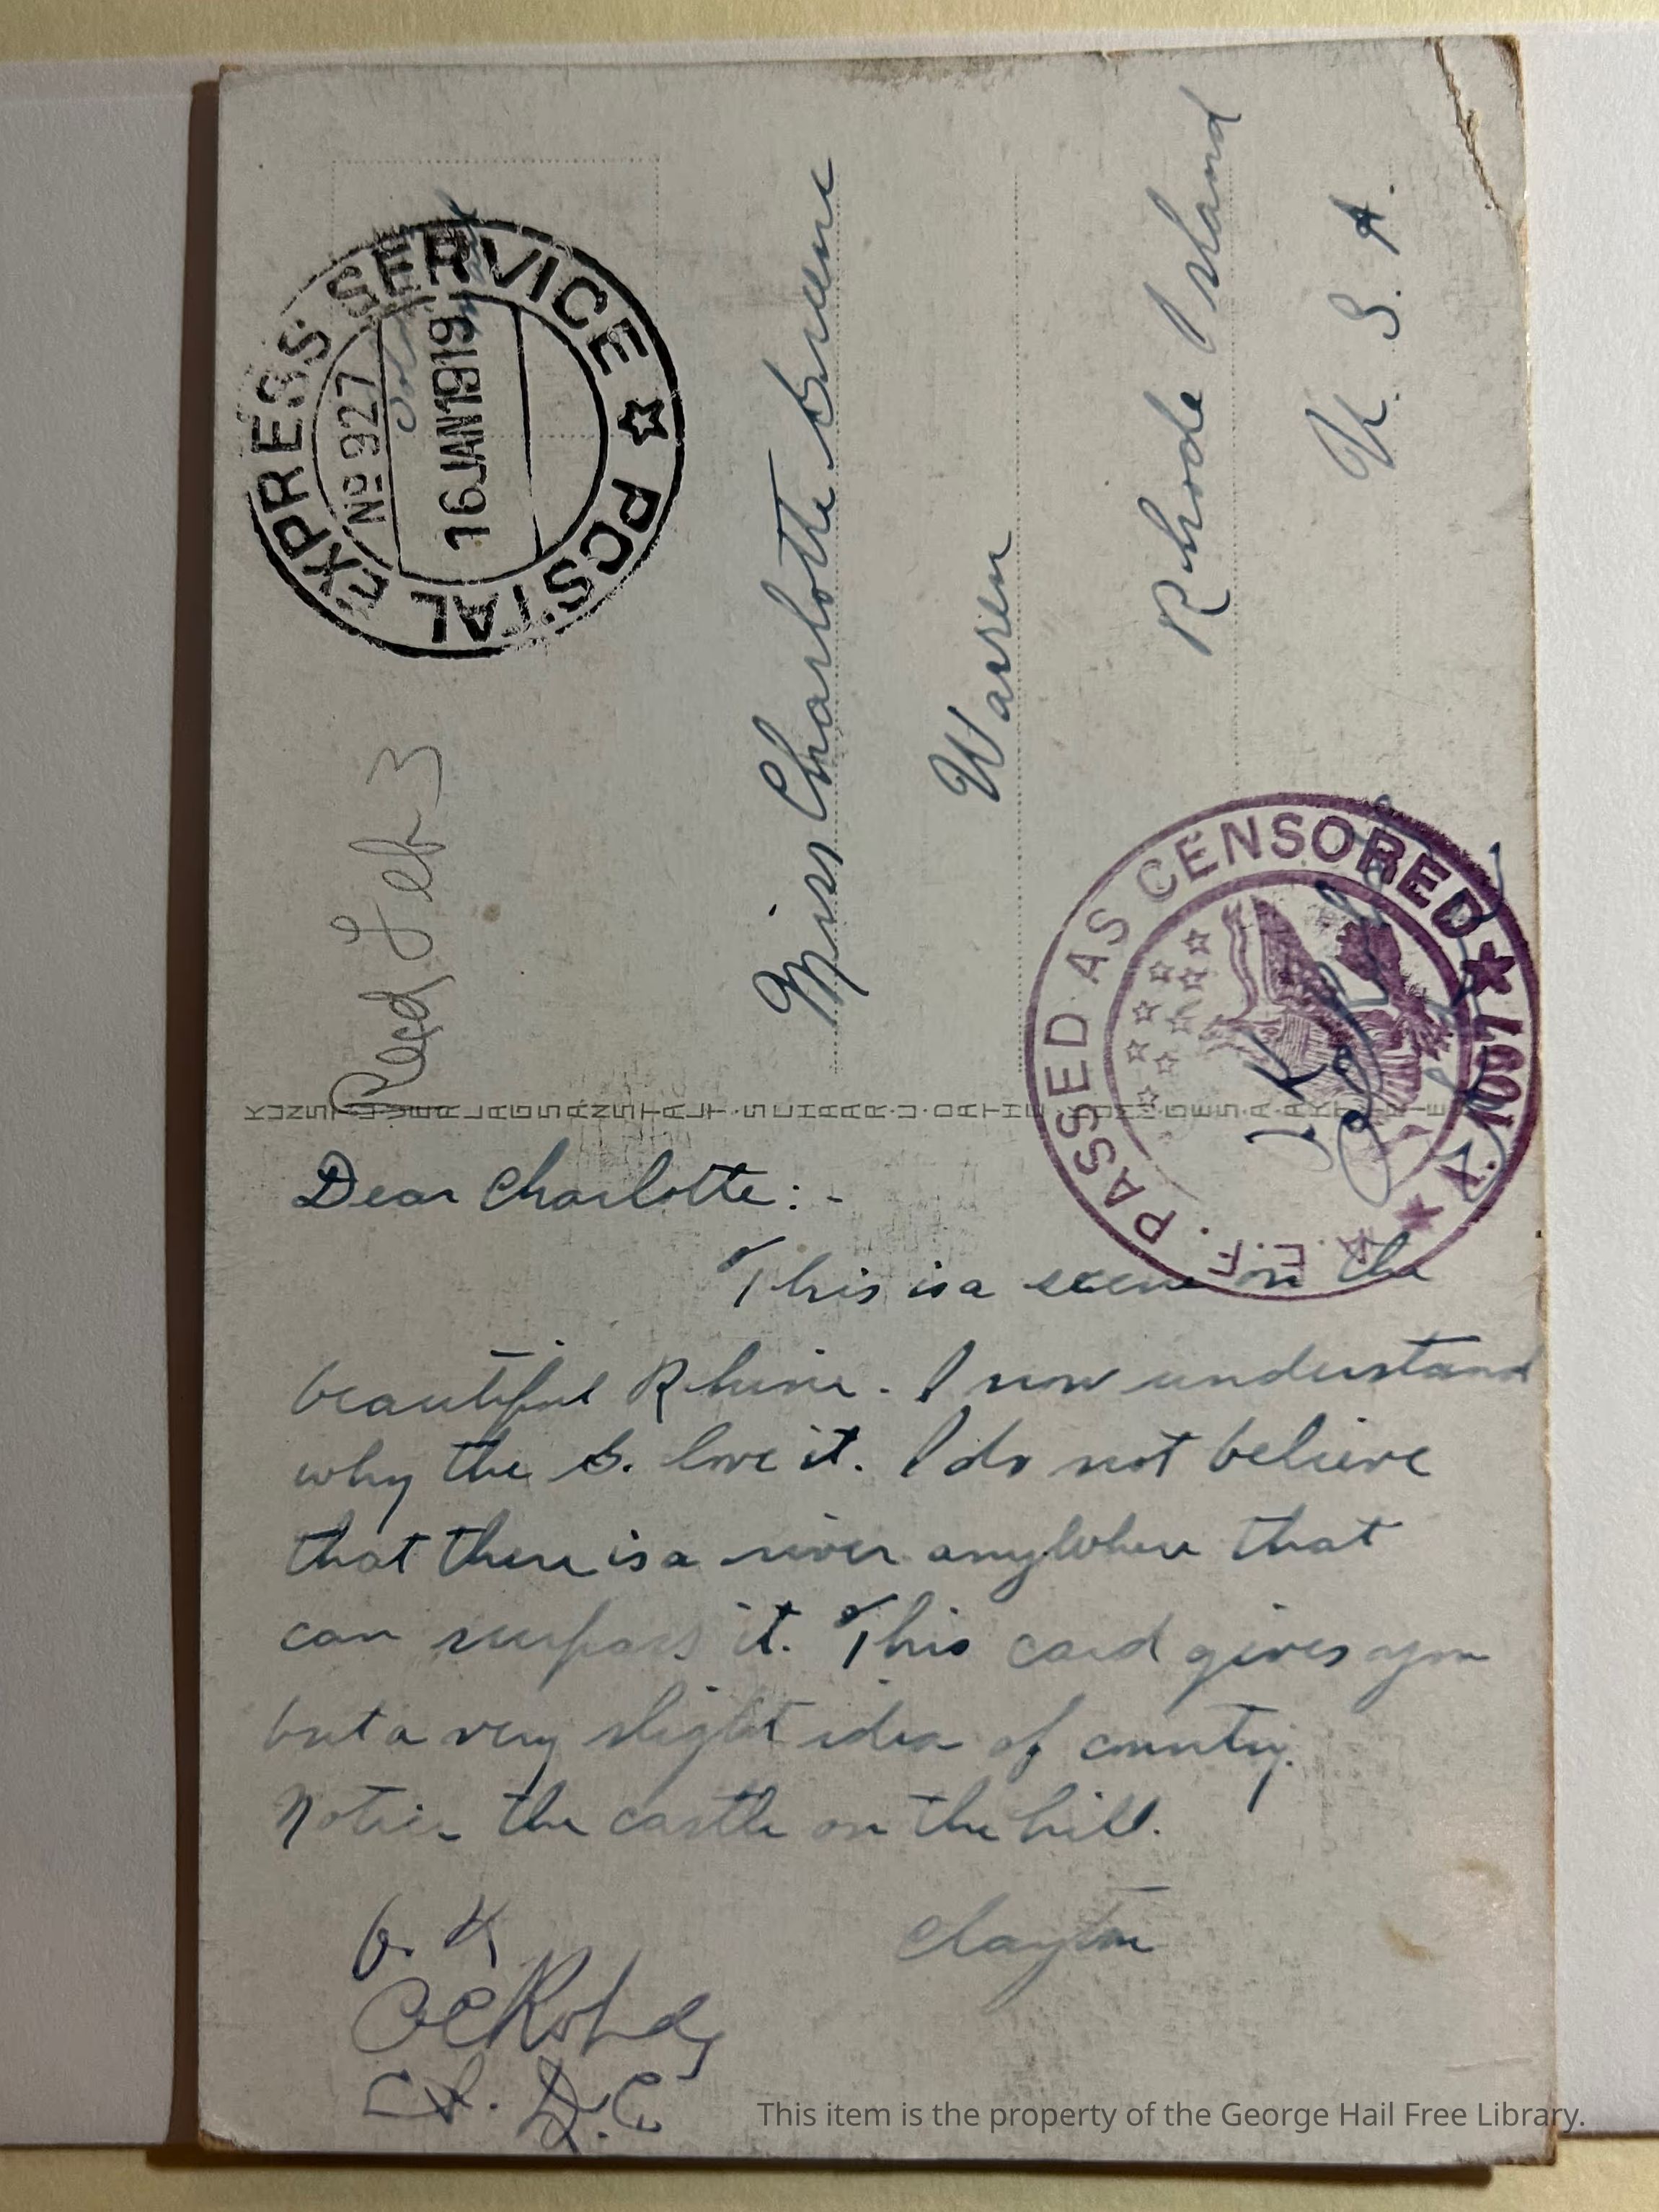 POSTAL EXPRESS SERVICE
No 927
16 JAN 1919
Soldiers mail
Recd Feb 3
Miss Charlotte Greene
Warren
Rhode Island
U. S. A.
A.E.F. PASSED AS CENSORED
O.K.
KUNST VERLAGSANSTALT SCHAAR & DATHE
Dear Charlotte:-
This is a scene on the
beautiful Rhine. I now understand
why the G. love it. I do not believe
that there is a river anywhere that
can surpass it. This card gives you
but a very slight idea of country.
Notice the castle on the hill.
Clayton
O.K
D.C
This item is the property of the George Hail Free Library.